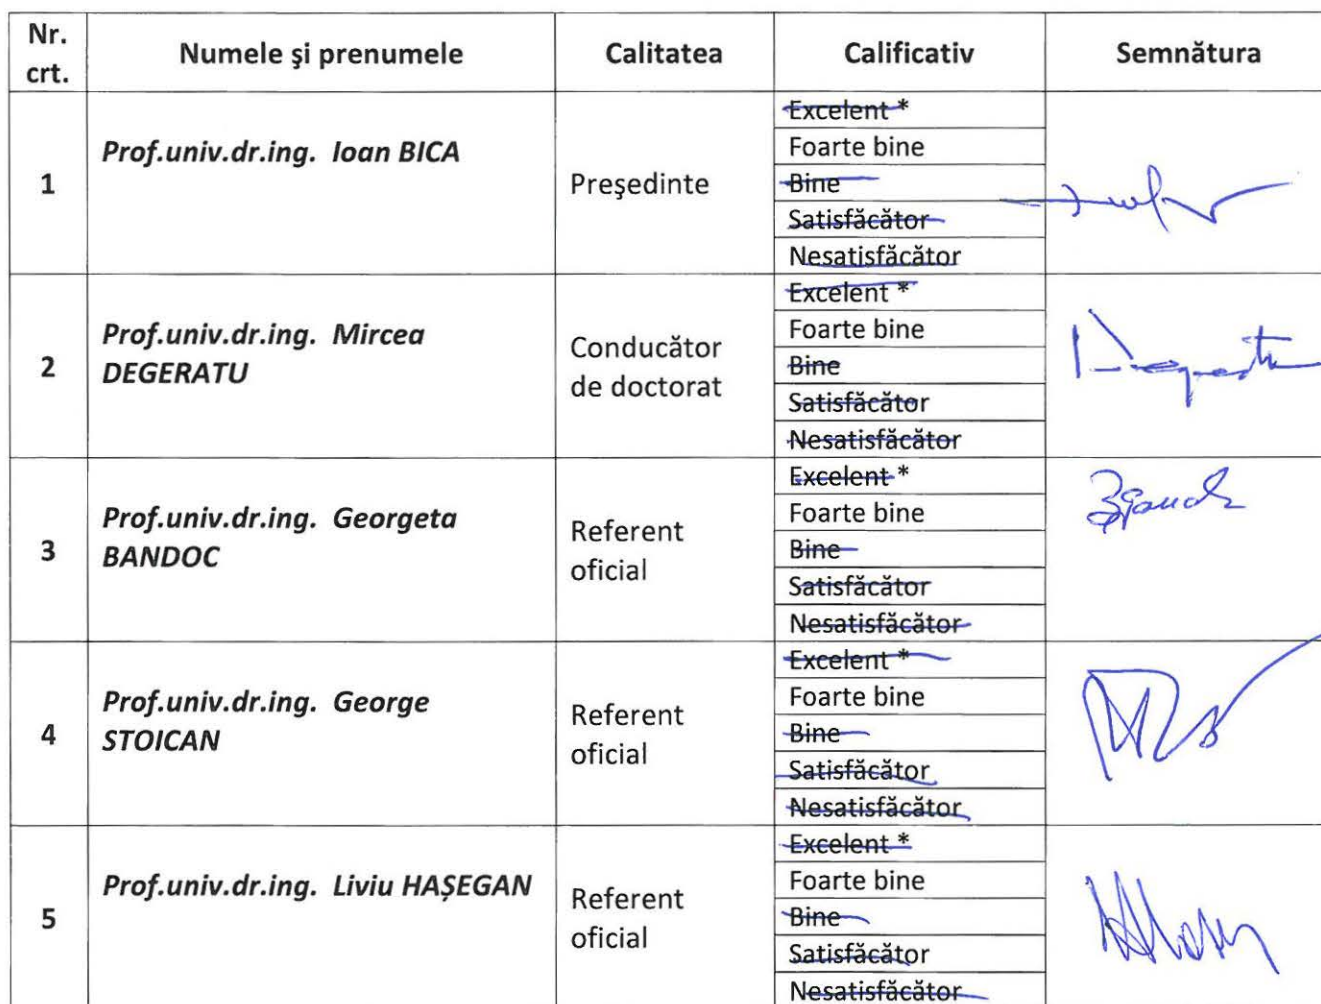 Nr. crt. Numele și prenumele Calitatea Calificativ Semnătura
1 Prof.univ.dr.ing. Ioan BICA Președinte
Excelent *
Foarte bine
Bine
Satisfăcător
Nesatisfăcător
2 Prof.univ.dr.ing. Mircea DEGERATU Conducător de doctorat
Excelent *
Foarte bine
Bine
Satisfăcător
Nesatisfăcător
3 Prof.univ.dr.ing. Georgeta BANDOC Referent oficial
Excelent *
Foarte bine
Bine
Satisfăcător
Nesatisfăcător
4 Prof.univ.dr.ing. George STOICAN Referent oficial
Excelent *
Foarte bine
Bine
Satisfăcător
Nesatisfăcător
5 Prof.univ.dr.ing. Liviu HAȘEGAN Referent oficial
Excelent *
Foarte bine
Bine
Satisfăcător
Nesatisfăcător